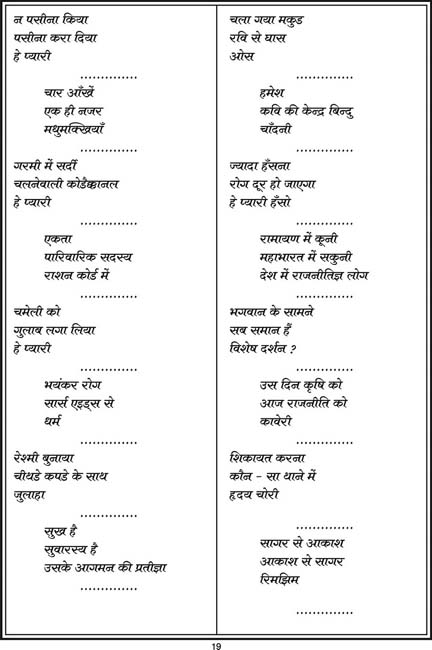 न पसीना किया
पसीना करा दिया
हे प्यारी
..............
चार आँखें
एक ही नजर
मधुमक्खियाँ
..............
गरमी में सर्दी
चलनेवाली कोडैक्कानल
हे प्यारी
..............
एकता
पारिवारिक सदस्य
राशन कोर्ड में
..............
चमेली को
गुलाब लगा लिया
हे प्यारी
..............
भयंकर रोग
सार्स एइड्स से
धर्म
..............
रेश्मी बुनाया
चीथडे कपडे के साथ
जुलाहा
..............
सुख है
सुवारस्य है
उसके आगमन की प्रतीज्ञा
..............
चला गया मकुड
रवि से घास
ओस
..............
हमेश
कवि की केन्द्र बिन्दु
चाँदनी
..............
ज्यादा हँसना
रोग दूर हो जाएगा
हे प्यारी हँसो
..............
रामायण में कूनी
महाभारत में सकुनी
देश में राजनीतिज्ञ लोग
..............
भगवान के सामने
सब समान हैं
विशेष दर्शन ?
..............
उस दिन कृषि को
आज राजनीति को
कावेरी
..............
शिकायत करना
कौन - सा थाने में
हृदय चोरी
..............
सागर से आकाश
आकाश से सागर
रिमझिम
..............
19